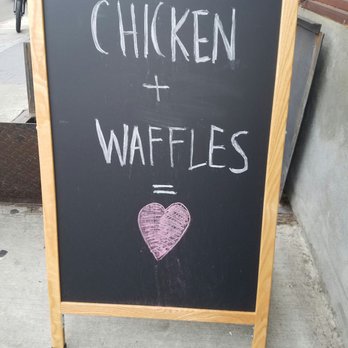 CHICKEN
+
WAFFLES
=